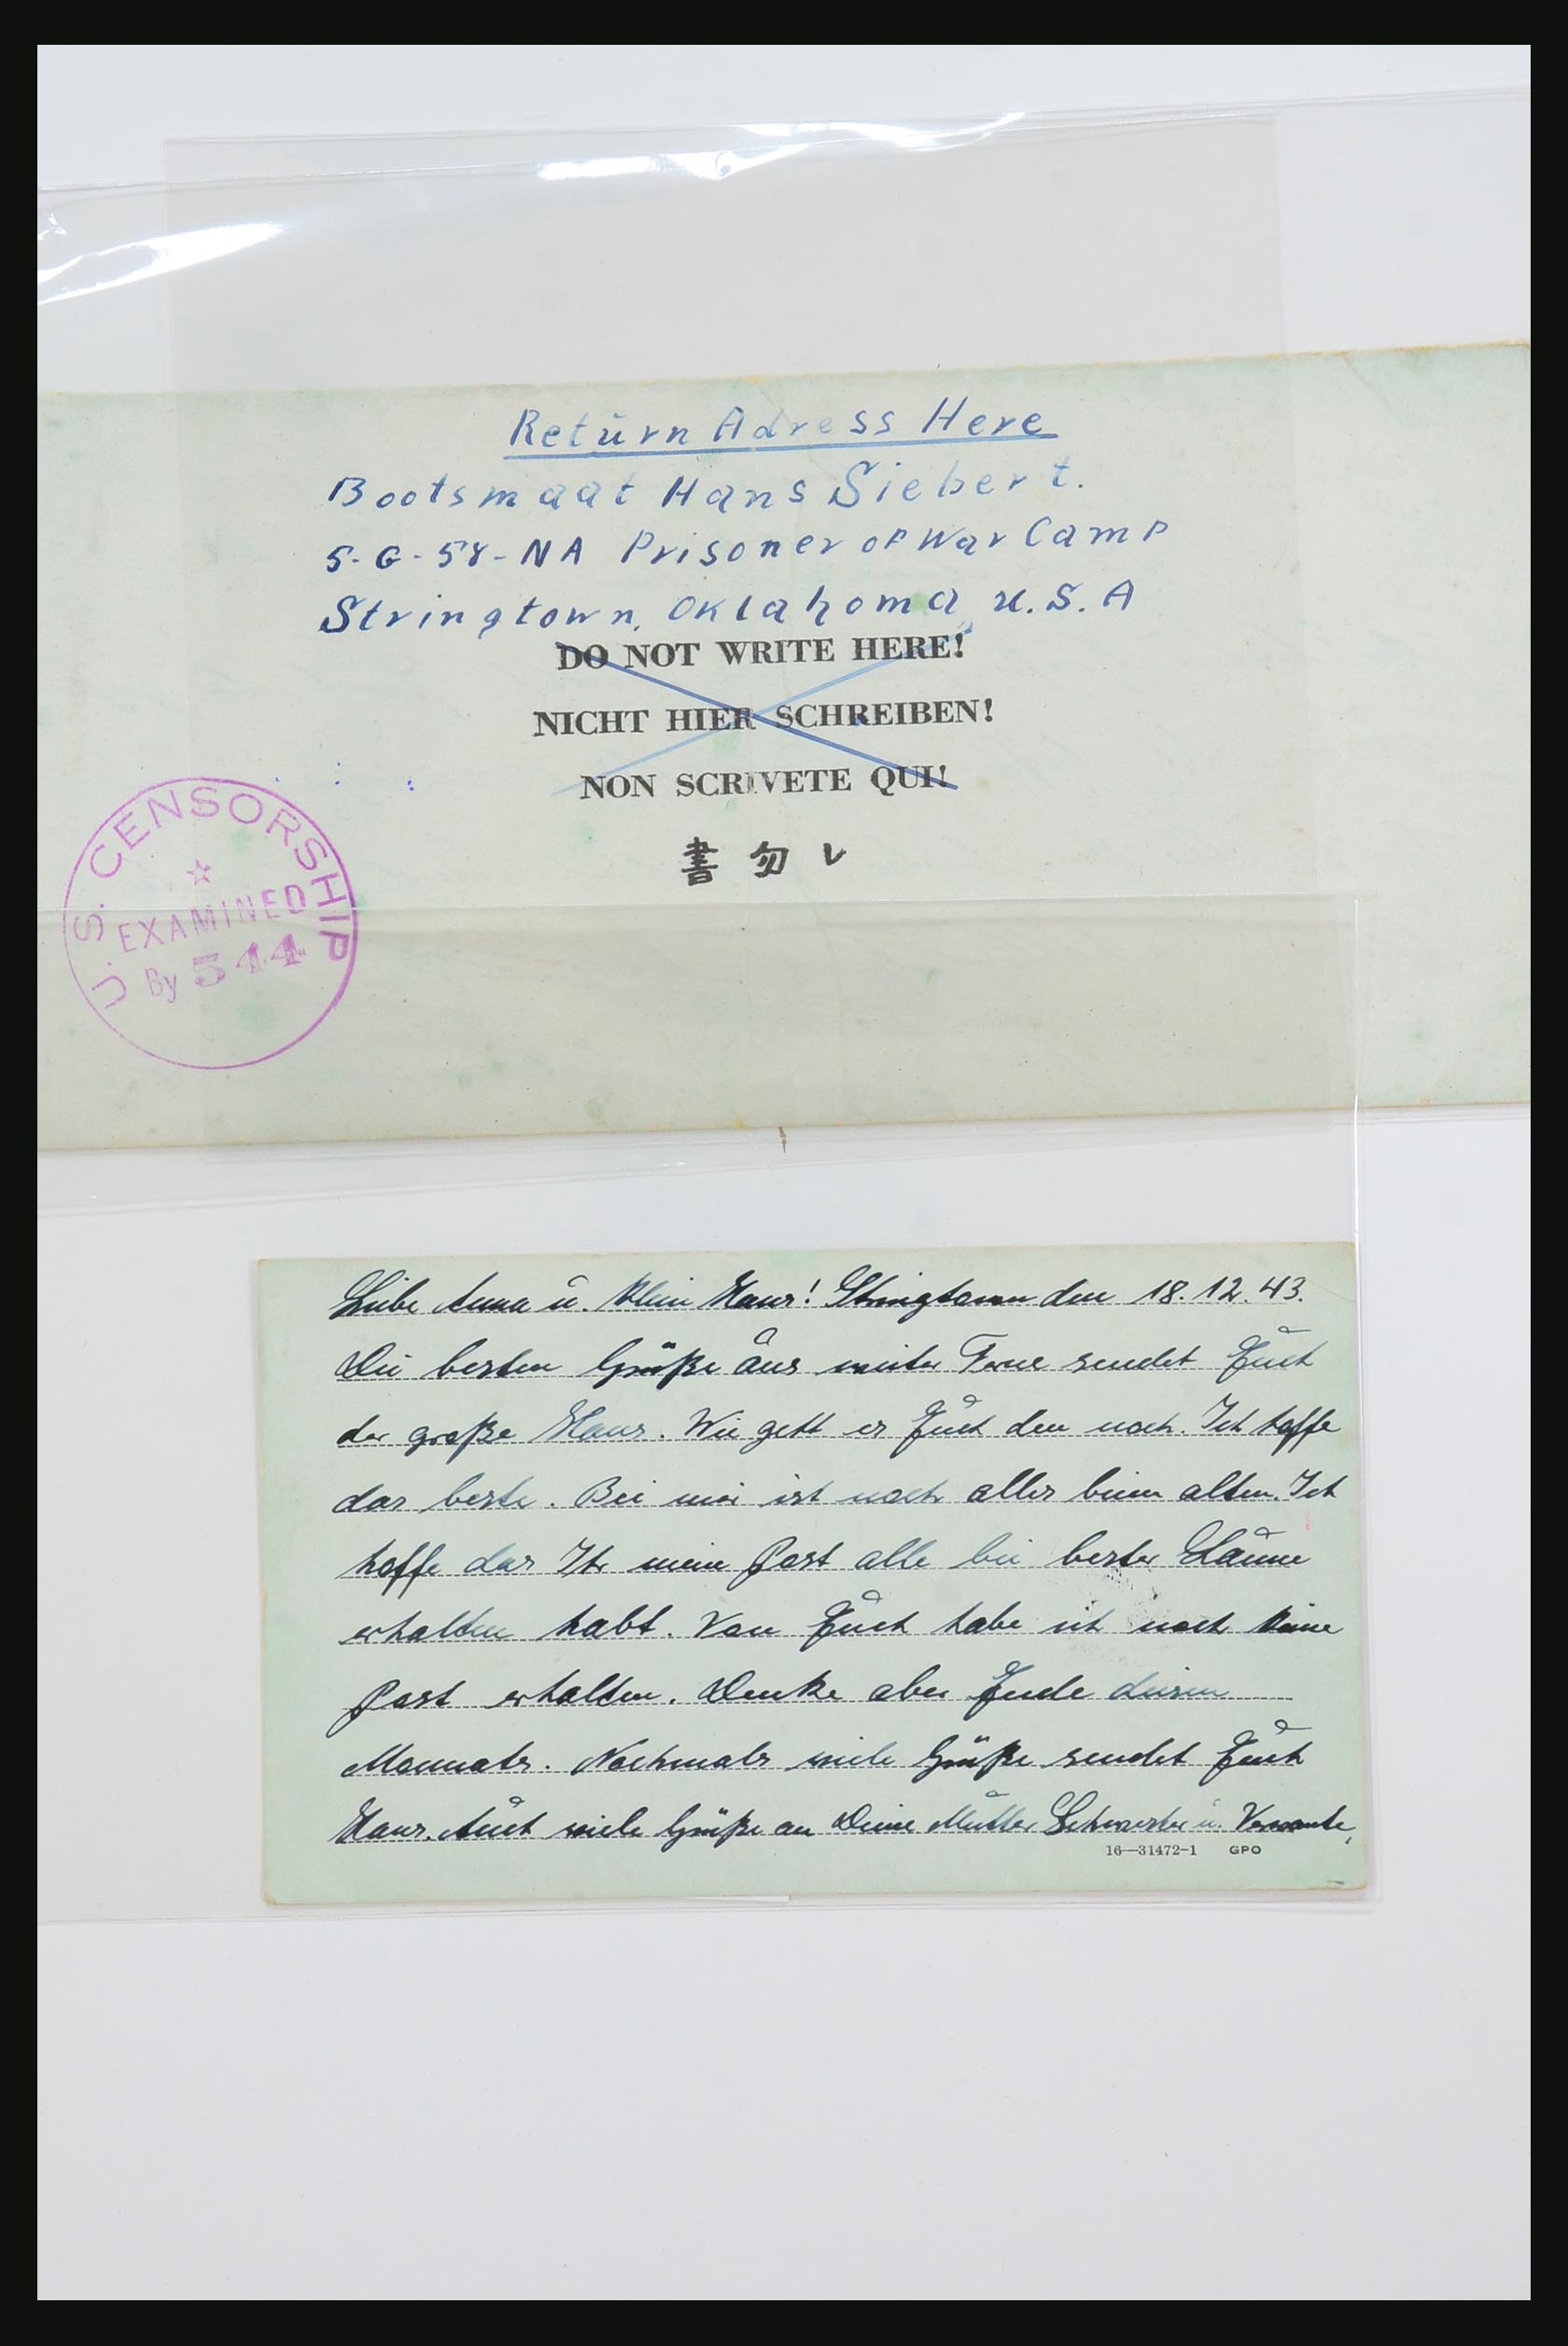 Return Adress Here
Bootsmaat Hans Siebert.
5-G-58-NA Prisoner of War Camp
Stringtown, Oklahoma, U.S.A
DO NOT WRITE HERE!
NICHT HIER SCHREIBEN!
NON SCRIVETE QUI!
書勿レ
U.S. CENSORSHIP
EXAMINED
By 544
Liebe Anna u. klein Hans! Stringtown den 18.12.43.
Die besten Grüße aus weiter Ferne sendet Euch
der große Hans. Wie geht es Euch den noch. Ich hoffe
das beste. Bei mir ist noch alles beim alten. Ich
hoffe das Ihr meine Post alle bei bester Laune
erhalten habt. Von Euch habe ich noch keine
Post erhalten. Denke aber Ende diesen
Monnats. Nochmals viele Grüße sendet Euch
Hans. Auch viele Grüße an Deine Mutter Schwester u. Verwante,
16—31472-1 GPO